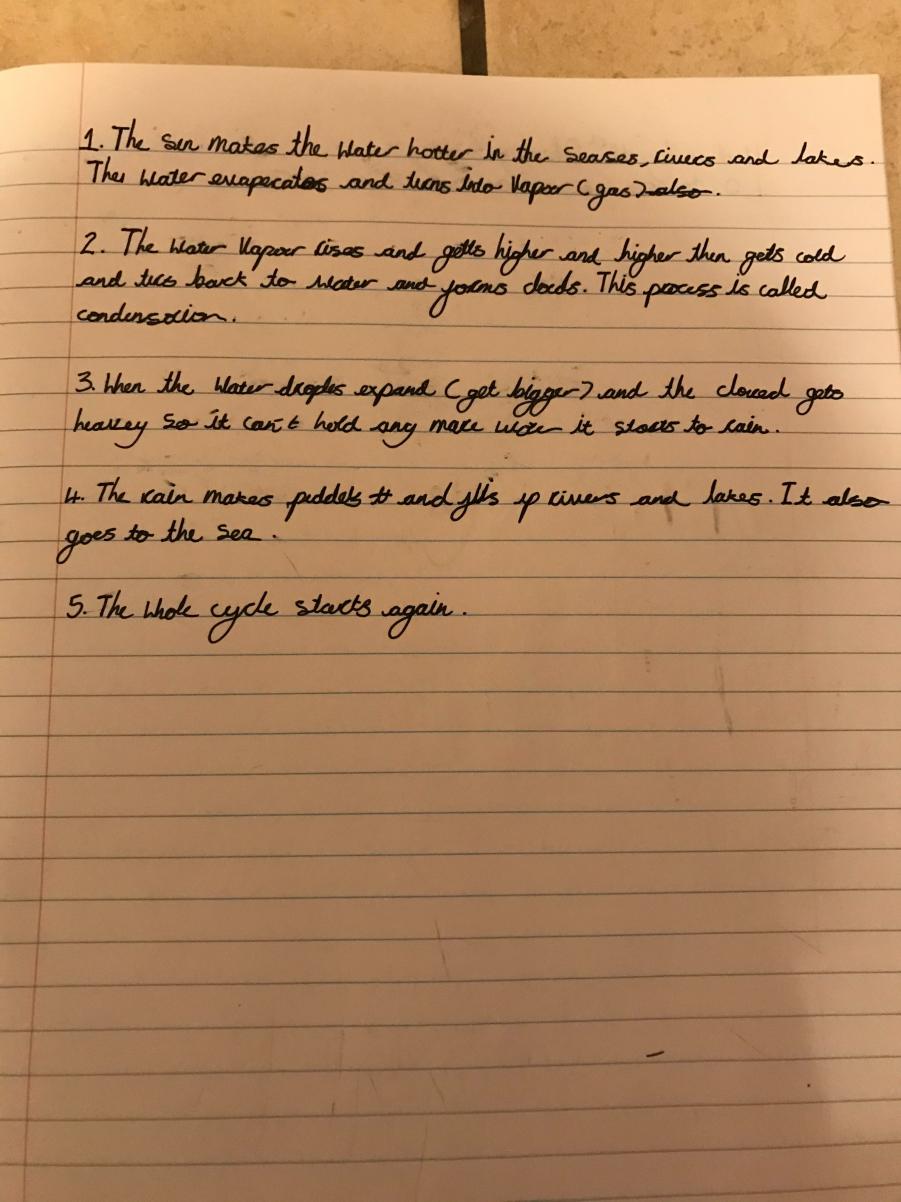 1. The sun makes the water hotter in the seases, rivers and lakes.
The water evaperates and turns into vapor (gas) also.
2. The water vapour rises and getts higher and higher then gets cold
and turs back to water and forms clouds. This process is called
condensation.
3. When the water droples expand (get bigger) and the clowed gets
heavey so it can't hold any more water it starts to rain.
4. The rain makes puddels and fills up rivers and lakes. It also
goes to the sea.
5. The whole cycle starts again.